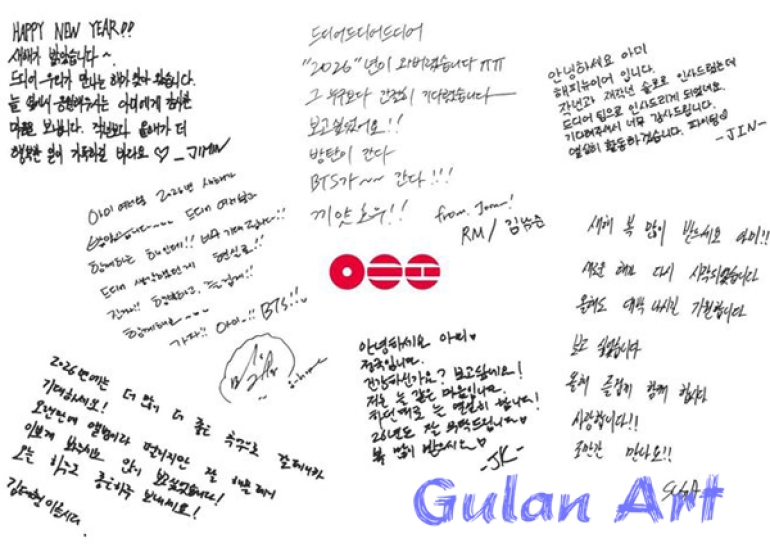 HAPPY NEW YEAR!!
새해가 밝았습니다~.
드디어 우리가 만나는 해가 찾아 왔습니다.
늘 옆에서 응원해주시는 아미에게 감사한
마음을 보냅니다. 작년보다 올해가 더
행복한 일이 가득하길 바라요 ♡ _JIMIN
드디어드디어드디어
"2026"년이 와버렸습니다 ㅠㅠ
그 누구보다 간절히 기다렸습니다
보고싶었어요!!
방탄이 간다
BTS가~~ 간다!!!
끼얏호우!!
from. Joon-!
RM / 김남준
안녕하세요 아미
해피뉴이어 입니다.
작년과 재작년 솔로로 인사드렸는데
드디어 팀으로 인사드리게 되었네요.
기다려주셔서 너무 감사드립니다.
열심히 활동하겠습니다. 파이팅♡
-JIN-
아미 여러분 2026년 새해가
밝았습니다~~~ 드디어 여러분과
함께하는 해인데!! 너무 기대됩니다!!
드디어 생각했던게 현실로!!
건강!! 행복하고, 즐겁게!!
함께해요~~~
가자!! 아미!! BTS!!
j-hope
새해 복 많이 받으세요 아미!!
새로운 해가 다시 시작되었습니다
올해도 대박 나시길 기원합니다
보고 싶었습니다
올해 즐겁게 함께 합시다
사랑합니다!!
조만간 만나요!!
SUGA
안녕하세요 아미♥
정국입니다.
건강하신가요? 보고싶네요!
저는 늘 같은 마음입니다.
하던대로 늘 열심히 합니다!
26년도 잘 부탁드립니다♥
복 많이 받으시오♡
-JK-
2026년에는 더 많이 더 좋은 추억으로 갈테니까
기대하세요!
오랜만에 앨범이라 떨리지만 잘 해볼테니
이쁘게 봐주세요 많이 보고싶었습니다!
오늘 하루도 좋은하루 보내세요!
김태형 이올시다.
Gulan Art